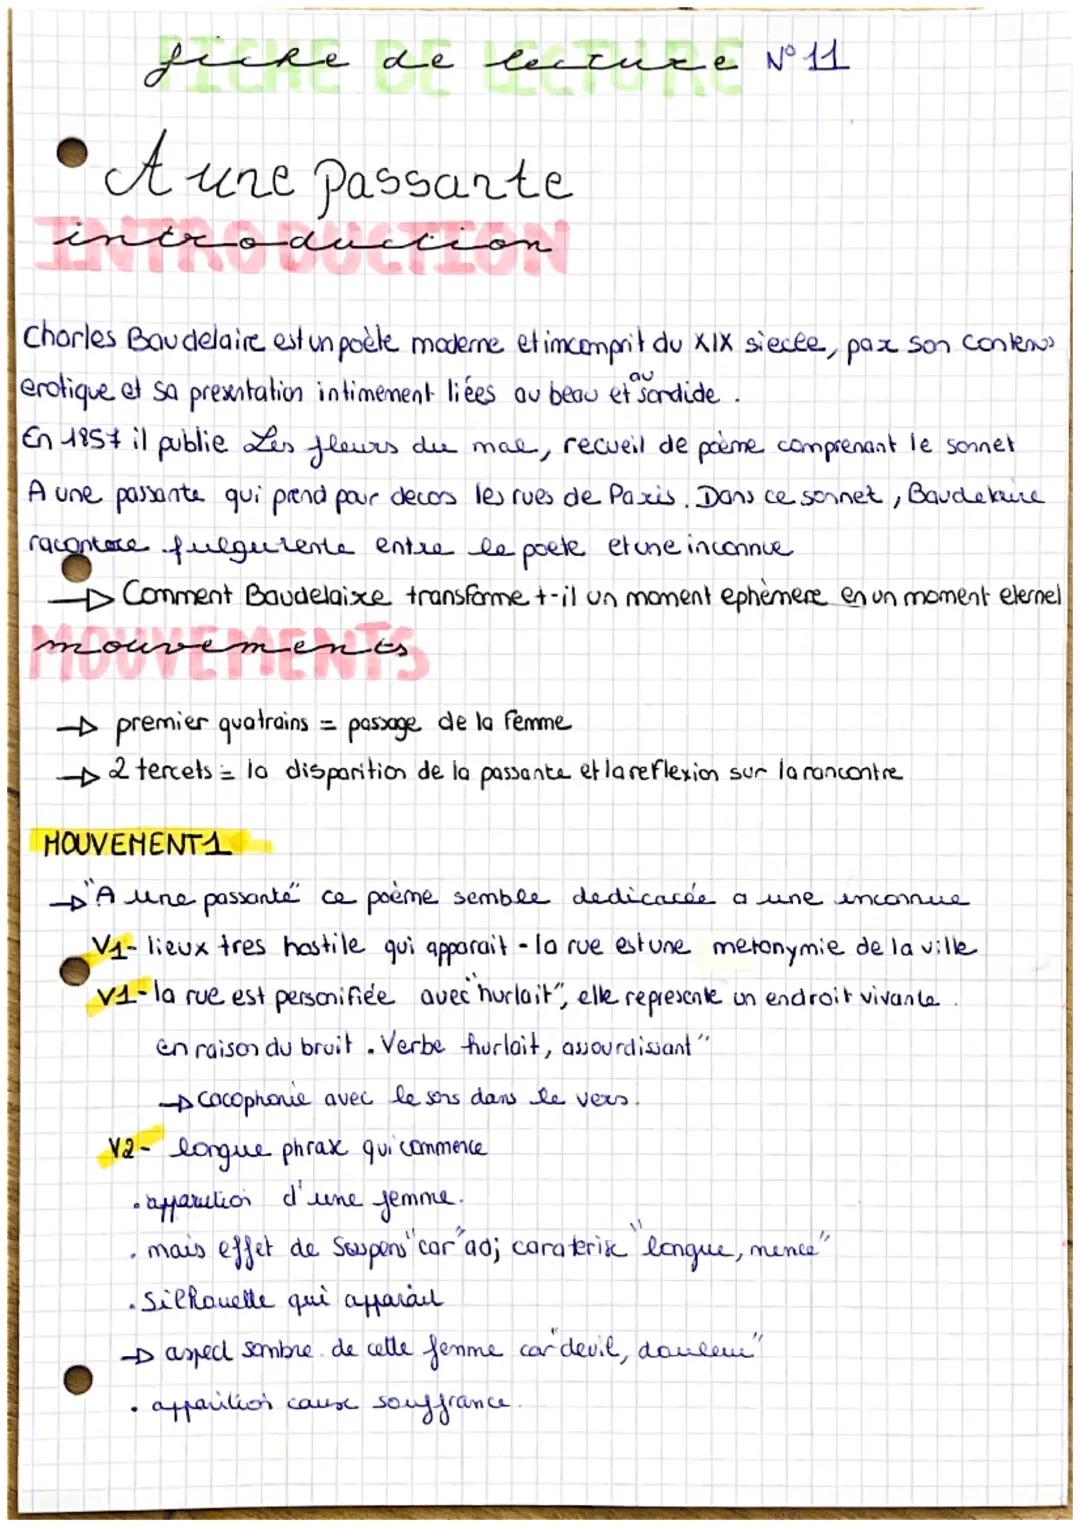 fiche de lecture N°11
FICHE DE LECTURE
A une passante
introduction
INTRODUCTION
Charles Baudelaire est un poète moderne et imcomprit du XIX siecle, par son contenus
erotique et sa presentation intimement liées au beau et au sordide.
En 1857 il publie Les fleurs du mal, recueil de poème comprenant le sonnet
A une passante qui prend pour decors les rues de Paris. Dans ce sonnet, Baudelaire
fulgurente entre le poete et une inconnue
→ Comment Baudelaire transforme t-il un moment ephèmere en un moment eternel
mouvements
MOUVEMENTS
→ premier quatrains = passage de la femme
→ 2 tercets = la disparition de la passante et la reflexion sur la rancontre
MOUVEMENT1
→ "A une passante" ce poème semble dedicacée a une inconnue
V1- lieux tres hostile qui apparait - la rue est une metonymie de la ville
V1- la rue est personifiée avec "hurlait", elle represente un endroit vivante.
en raison du bruit. Verbe hurlait, assourdissant"
→ cacophonie avec le sons dans le vers.
V2- longue phrase qui commence
• apparition d'une femme.
• mais effet de suspens "car" adj caraterise "longue, mence"
• Silhouette qui apparait
→ aspect sombre de cette femme car "deuil, douleur"
• apparition cause souffrance.